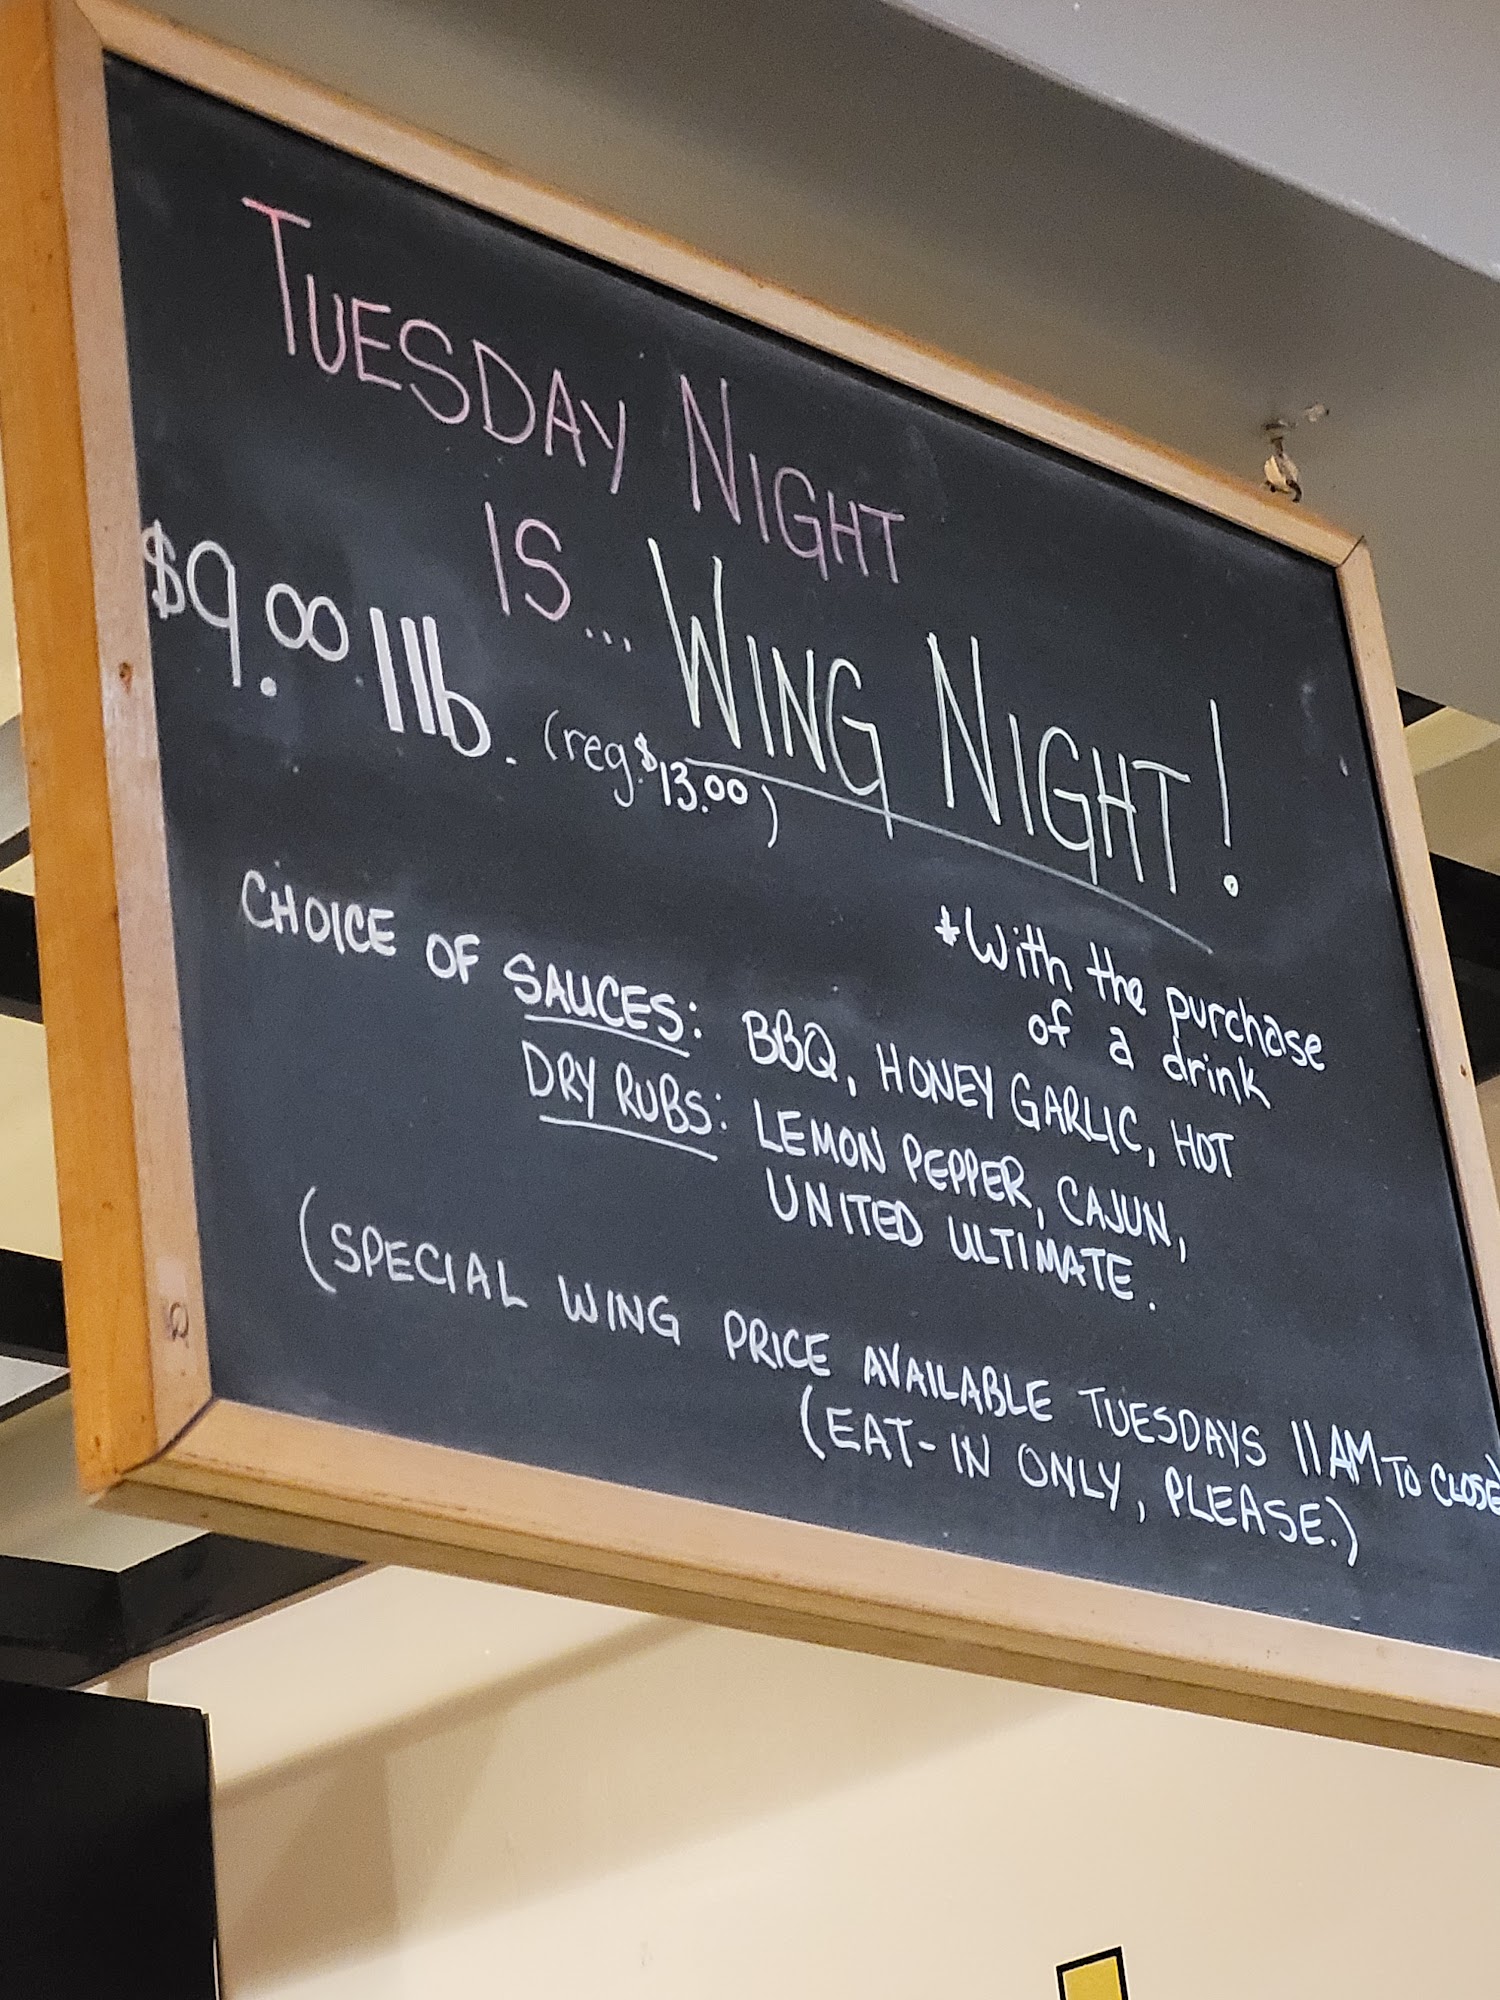 TUESDAY NIGHT
IS... WING NIGHT!
$9.00 1lb. (reg. $13.00)
*With the purchase
of a drink
CHOICE OF SAUCES: BBQ, HONEY GARLIC, HOT
DRY RUBS: LEMON PEPPER, CAJUN,
UNITED ULTIMATE.
(SPECIAL WING PRICE AVAILABLE TUESDAYS 11AM TO CLOSE)
(EAT-IN ONLY, PLEASE.)